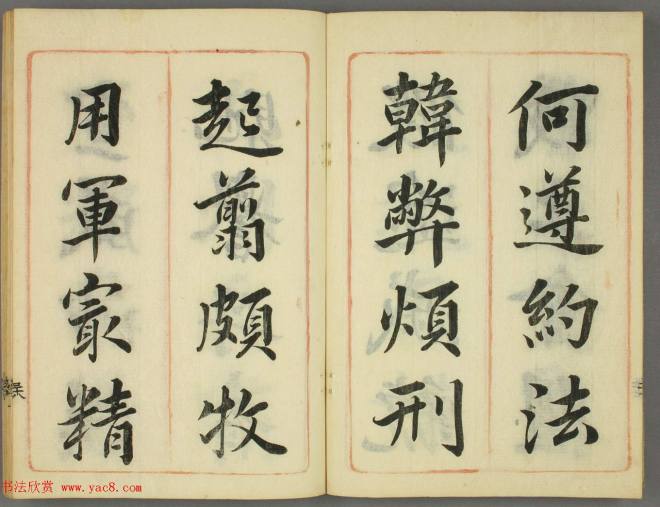 何遵約法
韓弊煩刑
起翦頗牧
用軍㝡精
书法欣赏 www.yac8.com